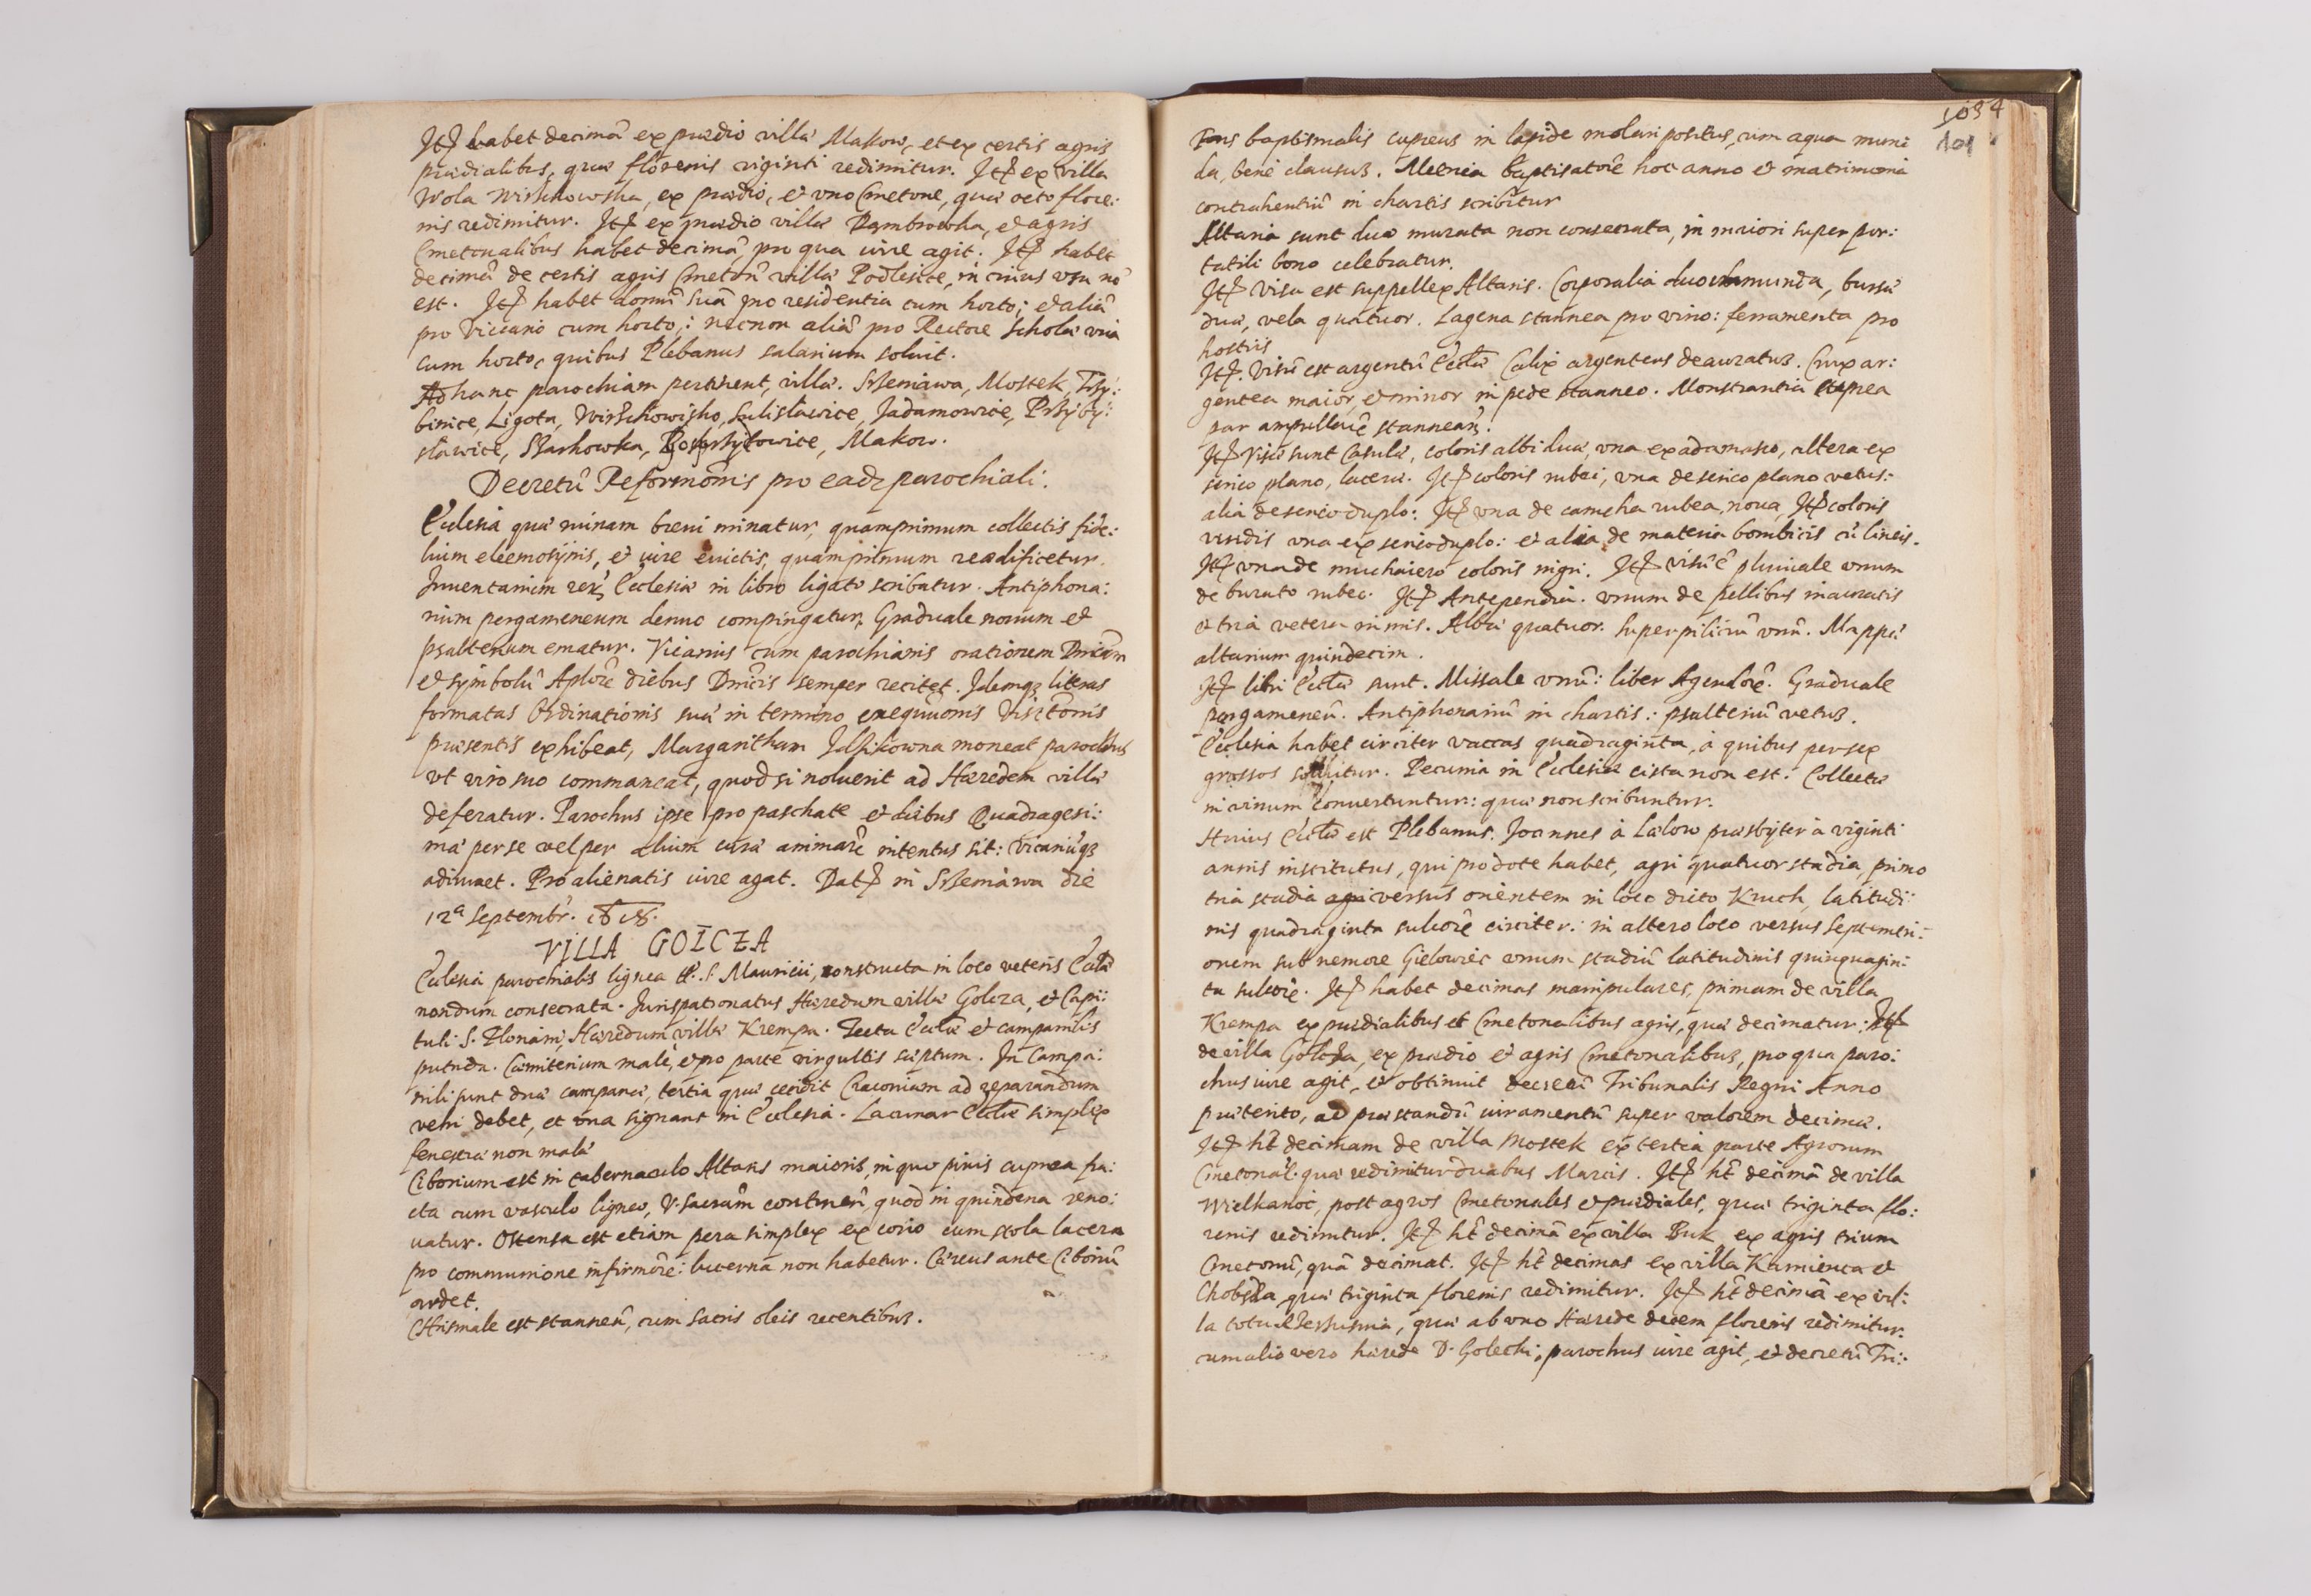 Itẽ habet decimã ex prædio villæ Makow, et ex certis agris
prædialibus, quæ florenis viginti redimitur. Itẽ ex villa
Wola Wirzchowska, ex prædio, et vno Cmetone, quæ octo flore:
nis redimitur. Itẽ ex prædio villæ Dambrowka, et agris
Cmetonalibus habet decimã, pro qua iure agit. Itẽ habet
decimã de certis agris Cmetonũ villæ Podlesice, in cuius vsu nõ
est. Itẽ habet domũ suã pro residentia cum horto; et aliã
pro Vicario cum horto; necnon aliã pro Rectore scholæ vnã
cum horto, quibus Plebanus salarium soluit.
Ad hanc parochiam pertinent, villæ. Szreniawa, Mostek, Trzy:
binice, Ligota, Wirzchowisko, Sulisławice, Jadamowice, Przyby:
sławice, Szarkowka, Makow.
Decretũ Reformõnis pro eadẽ parochiali.
Ecclesia quæ ruinam breui minatur, quamprimum collectis fide:
lium eleemosÿnis, et iure euictis, quamprimum reædificetur.
Inuentarium rerũ Ecclesiæ in libro ligato scribatur. Antiphona:
rium pergameneum denuo compingatur, Graduale nouum et
psalterium ematur. Vicarius cum parochianis orationem Dnicãm
et sÿmbolũ Aplorũ diebus Dnicis semper recitet. Idemqз literas
formatas Ordinationis suæ in termino exequũonis Visitõnis
præsentis exhibeat, Margaritham moneat parochus
vt viro suo commaneat, quod si noluerit ad Hæredem villæ
deferatur. Parochus ipse pro paschate et diebus Quadragesi:
mæ per se vel per alium curæ animarũ intentus sit: Vicariũqз
adiuuet. Pro alienatis iure agat. Datẽ in Szreniawa die
12ª Septembr. 1618.
VILLA GOLCZA
Ecclesia parochialis lignea tt. S. Mauricii, constructa in loco veteris Ecclæ
nondum consecrata. Jurispatronatus Hæredum villæ Golcza, et Capi:
tuli S. Floriani, Hæredum villæ Krempa. Tecta Ecclæ et campanilis
putrida. Cæmiterium male, et pro parte virgultis sæptum. In Campa:
nili sunt duæ campanæ, tertia quæ cecidit Cracouiam ad reparandum
vehi debet, et vna signans in Ecclesia. Lacunar Ecclæ simplex
fenestræ non malæ
Ciborium est in tabernaculo Altaris maioris, in quo pixis cuprea fra:
cta cum vasculo ligneo, V. Sacrãm continens, quod in quindena reno:
uatur. Ostensa est etiam pera simplex ex corio cum stola lacera
pro communione infirmorũ: lucerna non habetur. Cæreus ante Ciboriũ
ardet.
Chrismale est stanneũ, cum sacris oleis recentibus.
1034
101
Fons baptismalis cupreus in lapide molari positus, cum aqua mun:
da, bene clausus. Metrica baptisatorũ hoc anno et matrimonia
contrahentiũ in chartis scribitur
Altaria sunt duo murata non consecrata, in maiori super por:
tatili bono celebratur.
Itẽ Visa est suppellex Altaris. Corporalia duo munda, bursæ
duæ, vela quatuor. Lagena stannea pro vino: ferramenta pro
hostiis
Itẽ. Visũ est argentũ Ecclæ Calix argenteus deauratus. Crux ar:
gentea maior, et minor in pede stanneo. Monstrantia cuprea
par ampullarũ stannearũ.
Itẽ Visæ sunt Casulæ, coloris albi duæ, vna ex adamasco, altera ex
serico plano, lacera. Itẽ coloris rubei, vna de serico plano vetus:
alia de serico duplo: Itẽ vna de camcha rubea, noua, Itẽ coloris
viridis vna ex serico duplo: et alia de materia bombicis cũ lineis.
Itẽ vna de muchaiero coloris nigri. Itẽ visũ ẽ pluuiale vnum
de burato rubeo. Itẽ Antependia. vnum de pellibus inauratis
et tria vetera nimis. Albæ quatuor. Superpiliciũ vnũ. Mappæ
altarium quindecim.
Itẽ libri Ecclæ sunt. Missale vnũ: liber Agendorũ. Graduale
pargameneũ. Antiphonariũ in chartis: psalteriũ vetus.
Ecclesia habet circiter vaccas quadraginta, à quibus per sex
grossos soluitur. Pecunia in Ecclesiæ cista non est. Collectæ
in vinum conuertuntur: quæ non scribuntur.
Huius Ecclæ est Plebanus. Joannes à Lelow præsbyter à viginti
annis institutus, qui pro dote habet, agri quatuor stadia, primo
tria stadia agri versus orientem in loco dicto Kruch, latitudi:
nis quadraginta sulcorũ circiter: in altero loco versus Septemtri:
onem sub nemore Gielowiec vnum stadiũ latitudinis quinquagin:
ta sulcorũ. Itẽ habet decimas manipulares, primam de villa
Krempa ex prædialibus et Cmetonalibus agris, quæ decimatur: Itẽ
de villa Golcza, ex prædio et agris Cmetonalibus, pro qua paro:
chus iure agit, et obtinuit decretũ Tribunalis Regni Anno
præterito, ad præstandũ iuramentũ super valorem decimæ.
Itẽ hẽt decimam de villa Mostek ex tertia parte Agrorum
Cmetonal. quæ redimitur duabus Marcis. Itẽ hẽt decimã de villa
Wielkanoc, post agros Cmetonales et prædiales, quæ triginta flo:
renis redimitur. Itẽ hẽt decimã ex villa Buk, ex agris trium
Cmetonũ, quã decimat. Itẽ hẽt decimas ex villa Kamienca et
Chobędza, quæ triginta florenis redimitur. Itẽ hẽt decimã ex vil:
la tota, quæ ab vno Hærede decem florenis redimitur.
cum alio vero hærede D. Golecki, parochus iure agit, et decretũ Tri: